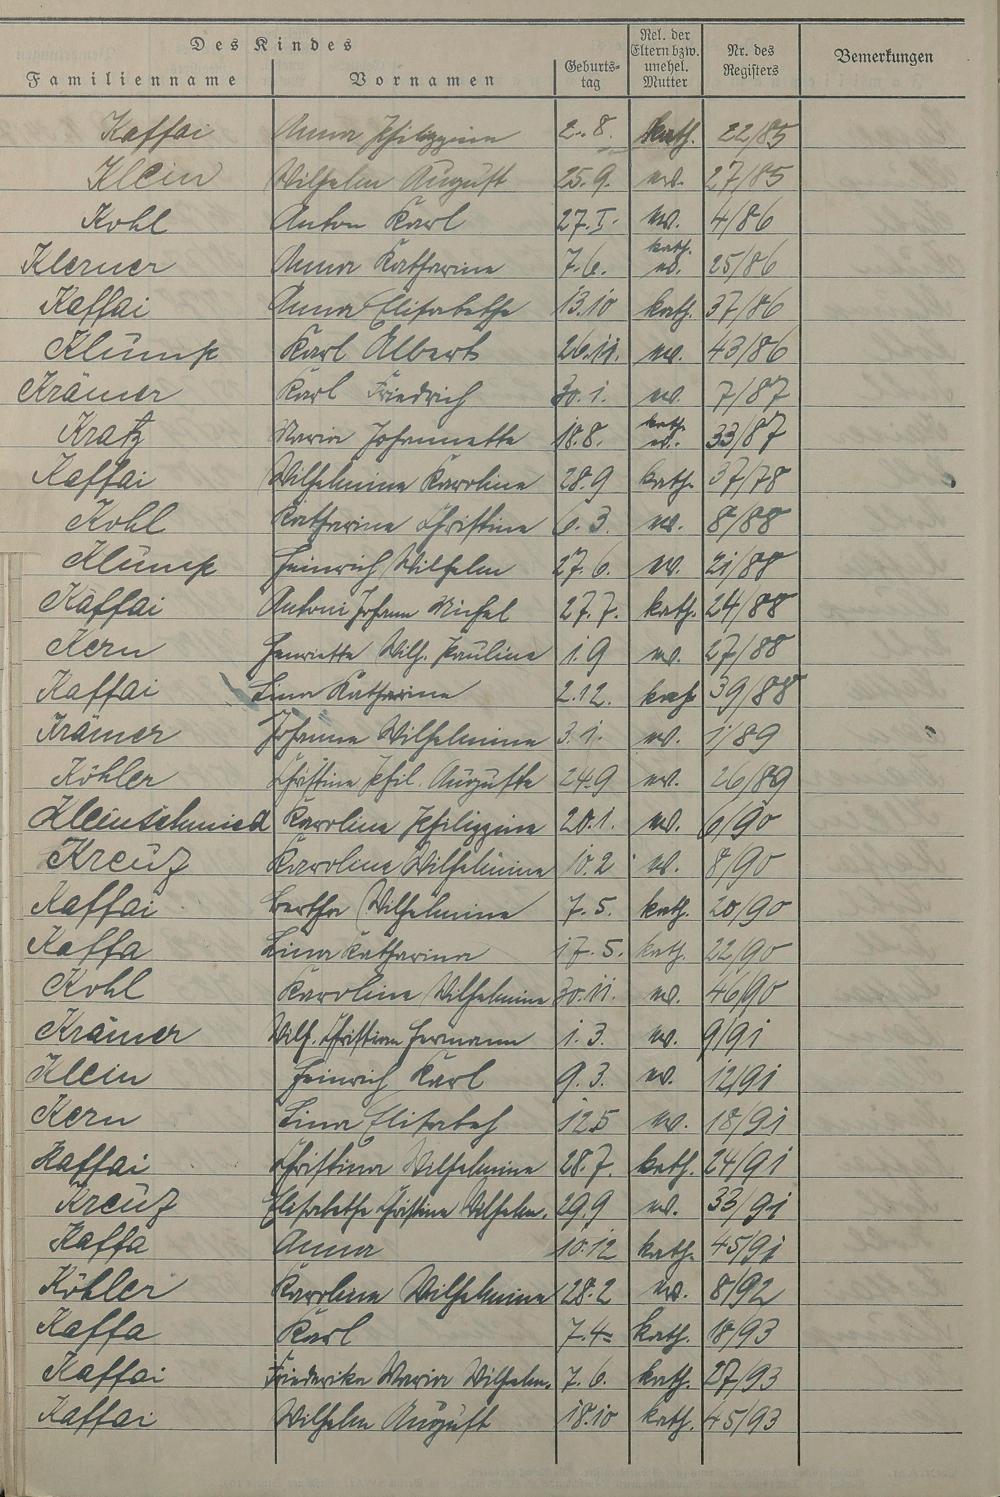 Des Kindes
Familienname Vornamen Geburts-tag Rel. der Eltern bzw. unehel. Mutter Nr. des Registers Bemerkungen
Kaffai Anna Philippina 2.8. kath. 22/85
Klein Wilhelm August 25.9. ev. 27/85
Kohl Anton Karl 27.I. ev. 4/86
Klerner Anna Katharina 7.6. kath. ev. 25/86
Kaffai Anna Elisabethe 13.10 kath. 37/86
Klump Karl Albert 26.11. ev. 43/86
Krämer Karl Friedrich 30.1. ev. 7/87
Kratz Maria Johannette 18.8. kath. ev. 33/87
Kaffai Wilhelmine Karoline 28.9 kath. 37/78
Kohl Katharine Christine 6.3. ev. 8/88
Klump Heinrich Wilhelm 27.6. ev. 21/88
Kaffai Antoni Johann Michel 27.7. kath. 24/88
Kern Henriette Wilh. Pauline 1.9 ev. 27/88
Kaffai Lina Katharina 2.12. kath 39/88
Krämer Johanna Wilhelmine 3.1. ev. 1/89
Köhler Christine Phil. Auguste 24.9 ev. 26/89
Kleinschmied Karoline Philippine 20.1. ev. 6/90
Kreuz Karoline Wilhelmine 10.2 ev. 8/90
Kaffai Bertha Wilhelmine 7.5. kath. 20/90
Kaffa Lina Katharina 17.5. kath. 22/90
Kohl Karoline Wilhelmine 30.11. ev. 46/90
Krämer Wilh. Christian Hermann 1.3. ev. 9/91
Klein Heinrich Karl 9.3. ev. 12/91
Kern Lina Elisabeh 12.5 ev. 18/91
Kaffai Christina Wilhelmine 28.7. kath. 24/91
Kreuz Elisabethe Christine Wilhelm. 29.9 ev. 33/91
Kaffa Anna 10.12 kath. 45/91
Köhler Karoline Wilhelmine 28.2 ev. 8/92
Kaffa Karl 7.4. kath. 18/93
Kaffai Friederike Maria Wilhelm. 7.6. kath. 27/93
Kaffai Wilhelm August 18.10 kath. 45/93